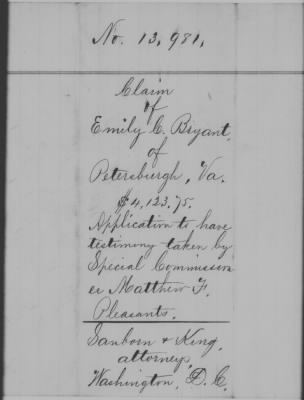 No. 13,981.
Claim
of
Emily C. Bryant,
of
Petersburgh, Va.
$4,123.75.
Application to have
testimony taken by
Special Commission
er Matthew F.
Pleasants.
Sanborn & King,
attorneys,
Washington, D.C.